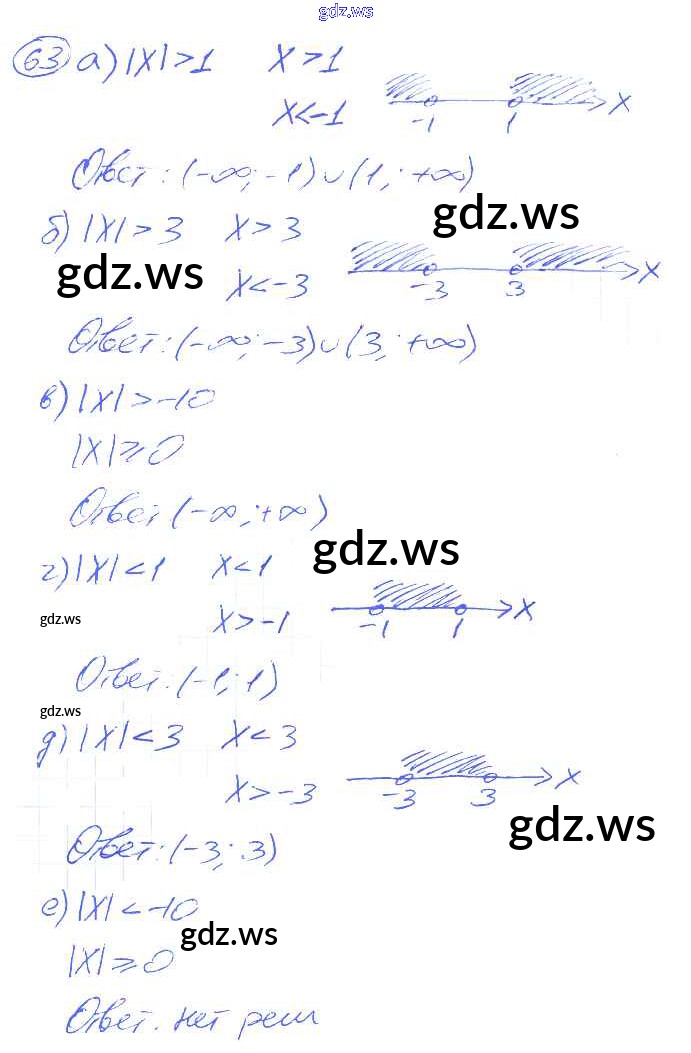 gdz.ws
63 а) |x|>1 x>1
x<-1
-1 1 x
Ответ: (-∞; -1)∪(1; +∞)
gdz.ws
б) |x|>3 x>3
gdz.ws
x<-3
-3 3 x
Ответ: (-∞; -3)∪(3; +∞)
в) |x|>-10
|x|⩾0
Ответ (-∞; +∞)
gdz.ws
г) |x|<1 x<1
gdz.ws
x>-1
-1 1 x
Ответ: (-1; 1)
gdz.ws
д) |x|<3 x<3
x>-3
-3 3 x
gdz.ws
Ответ: (-3; 3)
е) |x|<-10
gdz.ws
|x|⩾0
Ответ. нет реш